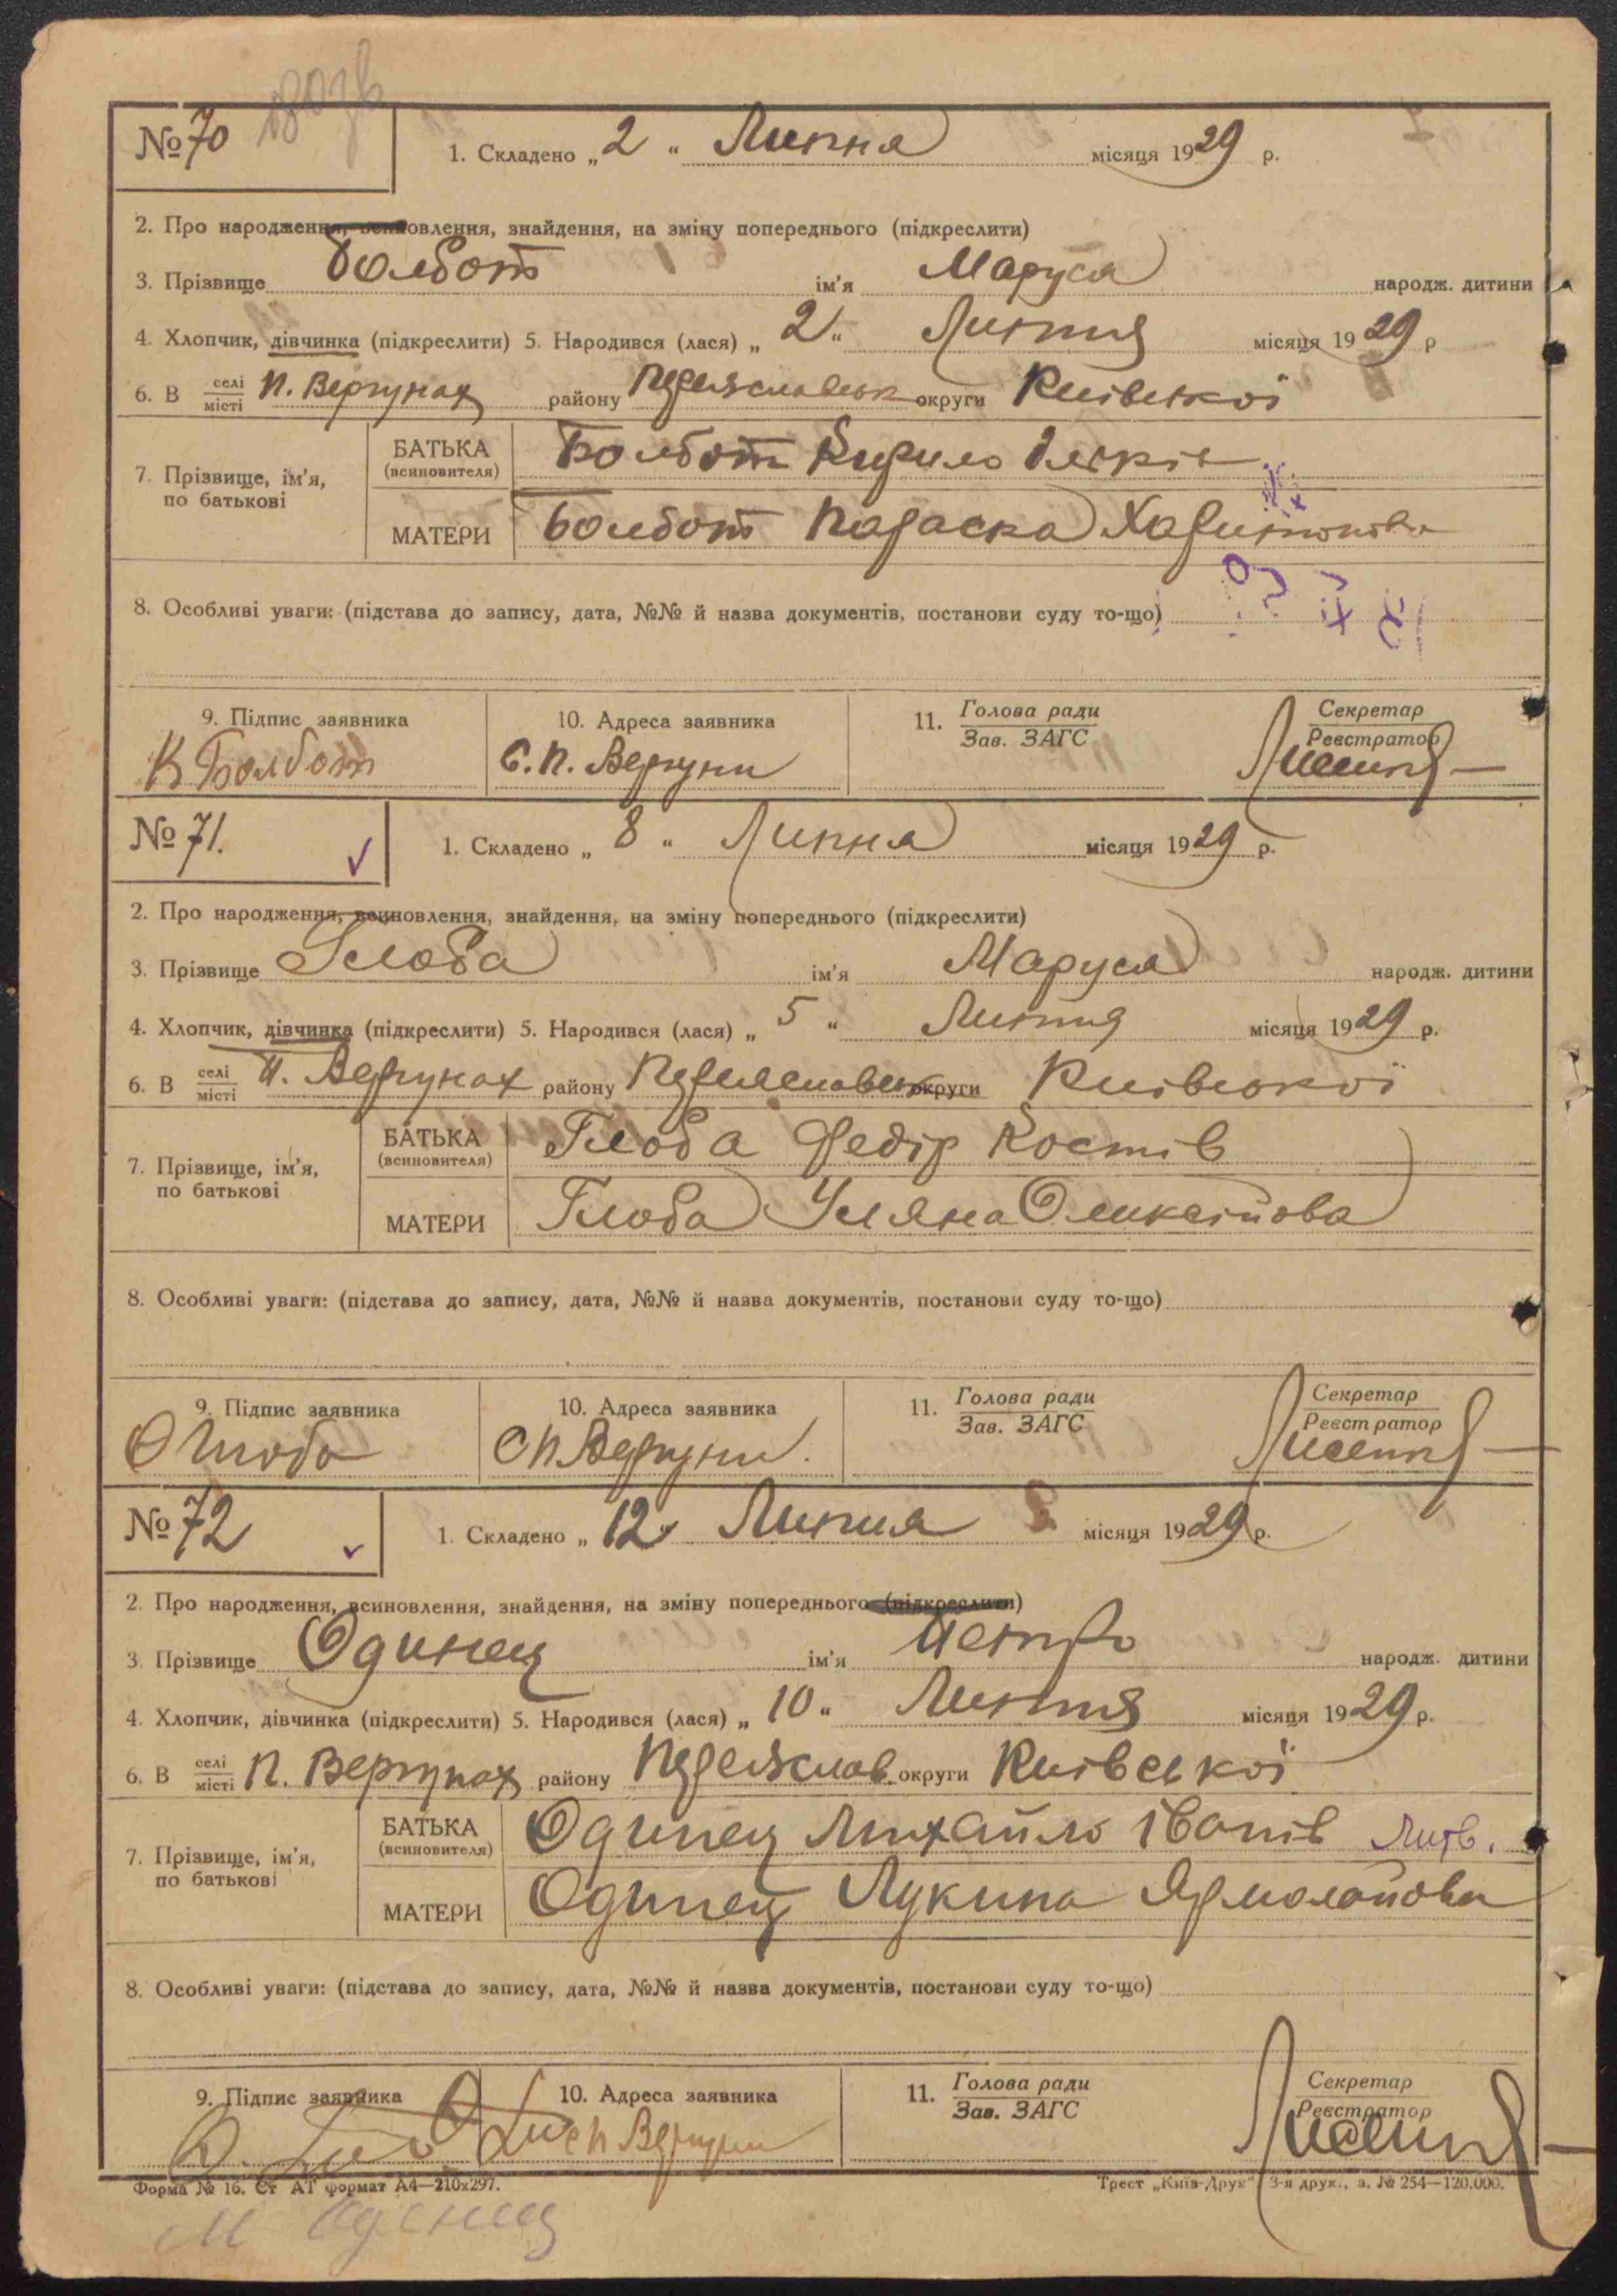 № 70
1. Складено „ 2 “ Липня місяця 1929 р.
2. Про народження, всиновлення, знайдення, на зміну попереднього (підкреслити)
3. Прізвище Болбот ім'я Маруся народж. дитини
4. Хлопчик, дівчинка (підкреслити) 5. Народився (лася) „ 2 “ Липня місяця 1929 р
6. В селі місті П. Вергунах району Переяславськ округи Київської
7. Прізвище, ім'я, по батькові
БАТЬКА (всиновителя) Болбот Кирило
МАТЕРИ Болбот Параска Харитонова
8. Особливі уваги: (підстава до запису, дата, №№ й назва документів, постанови суду то-що)
9. Підпис заявника 10. Адреса заявника 11. Голова ради Зав. ЗАГС Секретар Реєстратор
К Болбот С. П. Вергуни
№ 71.
1. Складено „ 8 “ Липня місяця 1929 р.
2. Про народження, всиновлення, знайдення, на зміну попереднього (підкреслити)
3. Прізвище Глоба ім'я Маруся народж. дитини
4. Хлопчик, дівчинка (підкреслити) 5. Народився (лася) „ 5 “ Липня місяця 1929 р.
6. В селі місті П. Вергунах району Переяславськ округи Київської
7. Прізвище, ім'я, по батькові
БАТЬКА (всиновителя) Глоба Федір Костів
МАТЕРИ Глоба Уляна Олексіїова
8. Особливі уваги: (підстава до запису, дата, №№ й назва документів, постанови суду то-що)
9. Підпис заявника 10. Адреса заявника 11. Голова ради Зав. ЗАГС Секретар Реєстратор
Глоба С П Вергуни.
№ 72
1. Складено „ 12 “ Липня місяця 1929 р.
2. Про народження, всиновлення, знайдення, на зміну попереднього (підкреслити)
3. Прізвище Одинец ім'я Петро народж. дитини
4. Хлопчик, дівчинка (підкреслити) 5. Народився (лася) „ 10 “ Липня місяця 1929 р.
6. В селі місті П. Вергунах району Переяслав. округи Київської
7. Прізвище, ім'я, по батькові
БАТЬКА (всиновителя) Одинец Михайло Іванів
МАТЕРИ Одинец Лукина Ярмолайова
8. Особливі уваги: (підстава до запису, дата, №№ й назва документів, постанови суду то-що)
9. Підпис заявника 10. Адреса заявника 11. Голова ради Зав. ЗАГС Секретар Реєстратор
с п Вергуни
Форма № 16. Ст АТ формат А4—210х297. Трест „Київ-Друк“ 3-я друк., з. № 254—120.000.
М Оденец